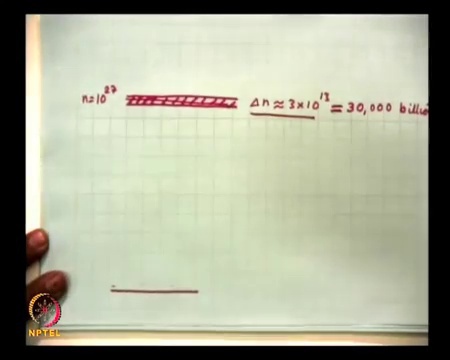 n=10²⁷ Δn ≈ 3×10¹³ = 30,000 billio
NPTEL